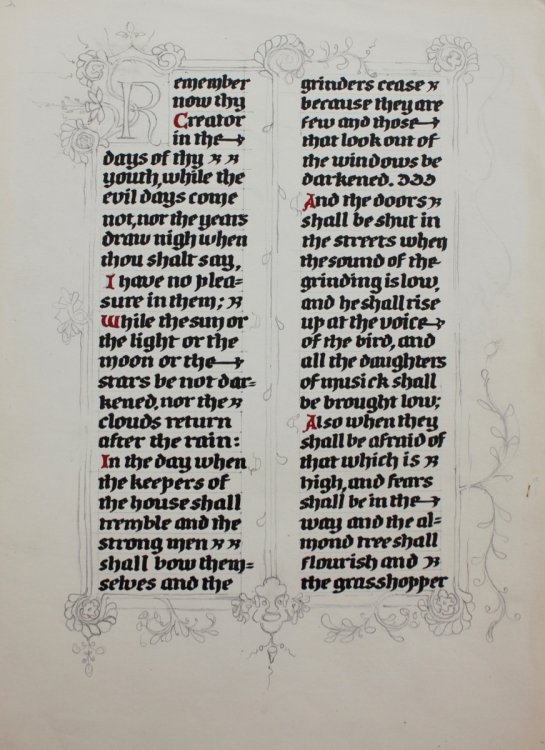 Remember
now thy
Creator
in the
days of thy
youth, while the
evil days come
not, nor the years
draw nigh when
thou shalt say,
I have no plea=
sure in them;
While the sun or
the light or the
moon or the
stars be not dar=
kened, nor the
clouds return
after the rain:
In the day when
the keepers of
the house shall
tremble and the
strong men
shall bow them=
selves and the
grinders cease
because they are
few and those
that look out of
the windows be
darkened.
And the doors
shall be shut in
the streets when
the sound of the
grinding is low,
and he shall rise
up at the voice
of the bird, and
all the daughters
of musick shall
be brought low;
Also when they
shall be afraid of
that which is
high, and fears
shall be in the
way and the al=
mond tree shall
flourish and
the grasshopper